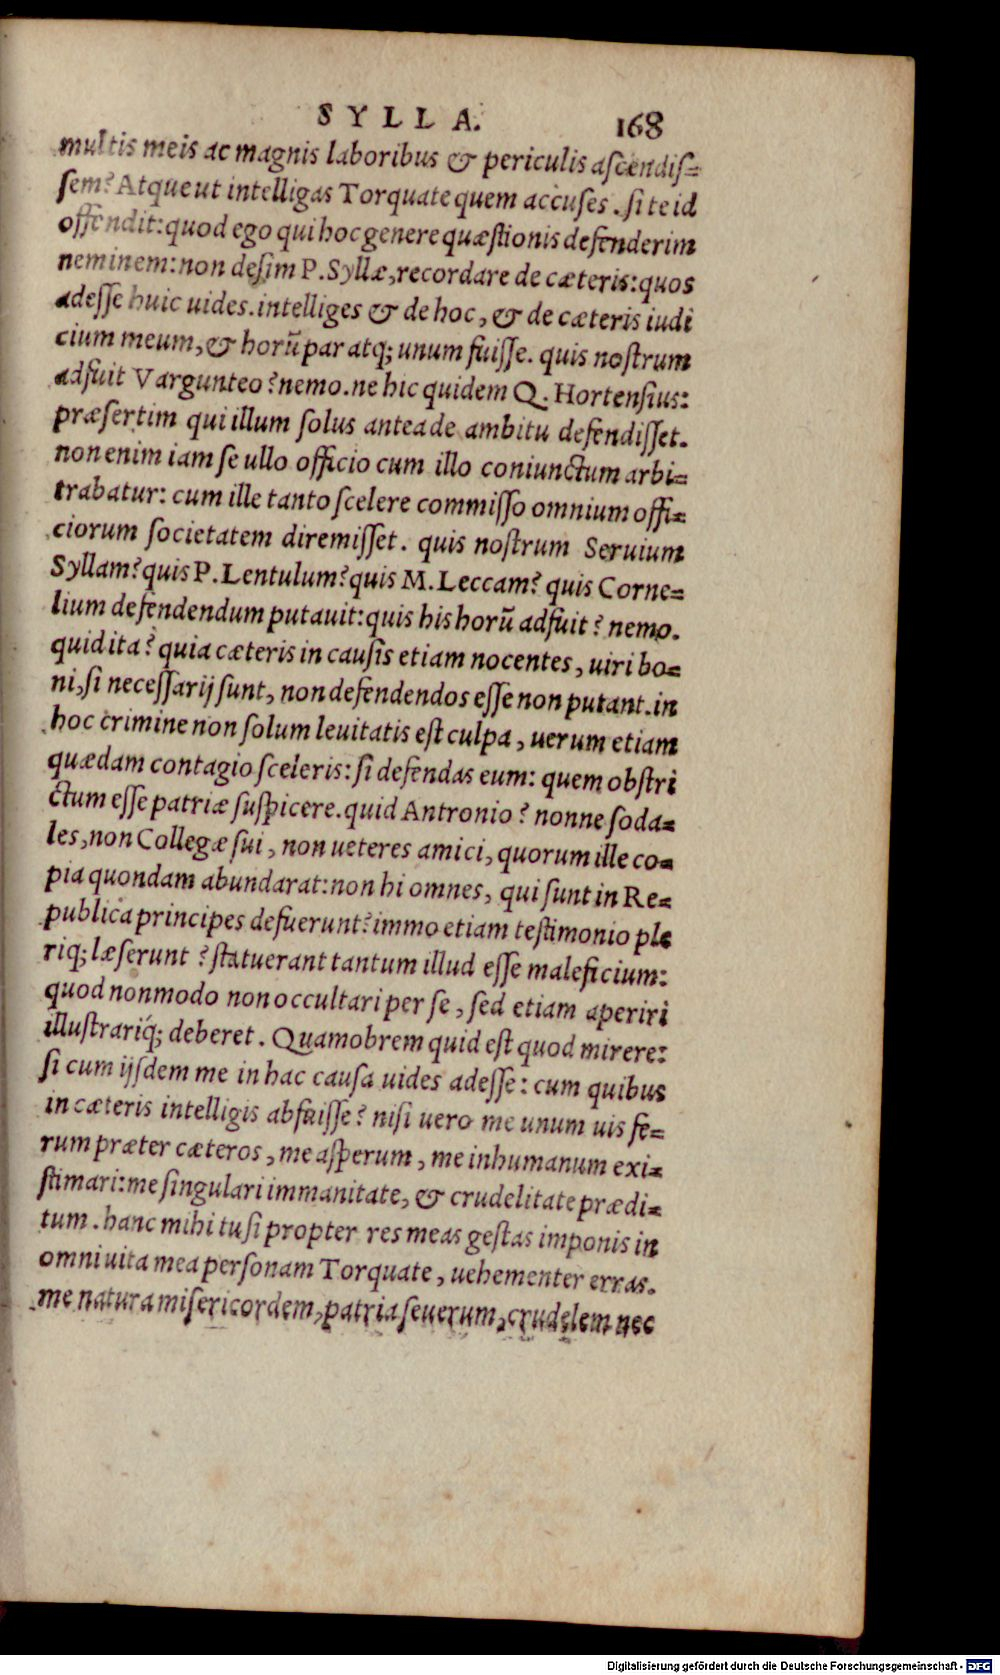 SYLLA. 168
multis meis ac magnis laboribus & periculis ascendis=
sem? Atque ut intelligas Torquate quem accuses. si te id
offendit: quod ego qui hoc genere quæstionis defenderim
neminem: non desim P. Syllæ, recordare de cæteris: quos
adesse huic uides. intelliges & de hoc, & de cæteris iudi
cium meum, & horũ par atq; unum fuisse. quis nostrum
adfuit Vargunteo? nemo. ne hic quidem Q. Hortensius:
præsertim qui illum solus antea de ambitu defendisset.
non enim iam se ullo officio cum illo coniunctum arbi=
trabatur: cum ille tanto scelere commisso omnium offi=
ciorum societatem diremisset. quis nostrum Seruium
Syllam? quis P. Lentulum? quis M. Leccam? quis Corne=
lium defendendum putauit: quis his horũ adfuit? nemo.
quid ita? quia cæteris in causis etiam nocentes, uiri bo=
ni, si necessarij sunt, non defendendos esse non putant. in
hoc crimine non solum leuitatis est culpa, uerum etiam
quædam contagio sceleris: si defendas eum: quem obstri
ctum esse patriæ suspicere. quid Antronio? nonne soda=
les, non Collegæ sui, non ueteres amici, quorum ille co=
pia quondam abundarat: non hi omnes, qui sunt in Re=
publica principes defuerunt? immo etiam testimonio ple
riq; læserunt? statuerant tantum illud esse maleficium:
quod nonmodo non occultari per se, sed etiam aperiri
illustrariq́; deberet. Quamobrem quid est quod mirere:
si cum ijsdem me in hac causa uides adesse: cum quibus
in cæteris intelligis abfuisse? nisi uero me unum uis fe=
rum præter cæteros, me asperum, me inhumanum exi=
stimari: me singulari immanitate, & crudelitate prædi=
tum. hanc mihi tu si propter res meas gestas imponis in
omni uita mea personam Torquate, uehementer erras.
me natura misericordem, patria seuerum, crudelem nec
Digitalisierung gefördert durch die Deutsche Forschungsgemeinschaft - DFG